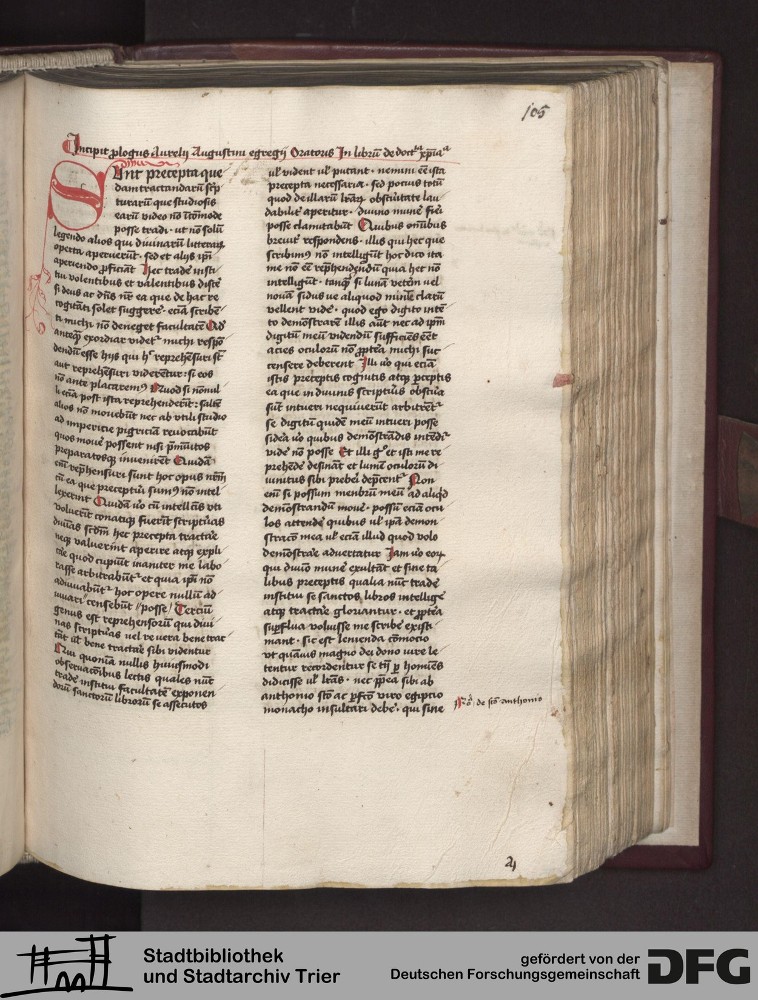 105
Incipit plogus Aurelij Augustini egregij Oratoris In librū de doct'a xpiana
Sunt precepta que
dam tractandarū scrip
turarū que studiosis
earū video nō īcōmode
posse tradi · ut nō solū
legendo alios qui diuinarū litterarꝫ
operta aperuerūt · sed et alijs ipī
aperiendo ꝓficiāt Hec trade īsti
tui volentibus et valentibus disce
si deus ac dn̄s nr̄ ea que de hac re
cogitāti solet suggere · eciā scribē
ti michi nō deneget facultatē Qd
anteq̄ exordiar videt michi respō
dendū esse hijs qui h' reprehēsuri sūt
aut reprehēsuri viderētur · si eos
nō ante placaremꝰ Quod si nōnul
li eciā post ista reprehenderīt · saltē
alios nō mouebūt nec ab vtili studio
ad impericie pigriciā reuocabūt
quos mouē possent nisi p̄mūitos
preparatosqꝫ inuenirēt Quidā
em̄ rep̄hensuri sunt hoc opus nr̄m
cū ea que preceptūi sumꝰ nō intel
lexerint Quidā vo cū intellc̄is vti
voluerīt conatiqꝫ fuerīt scripturas
diuīas scdm̄ hec precepta tractare
neqꝫ valuerint aperire atqꝫ expli
care quod cupiūt inaniter me labo
rasse arbitrabūt et quia ipī nō
adiuuabūt hoc opere nullū ad
iuuari censebūt posse Terciū
genus est reprehensorū qui diui
nas scripturas uel re uera bene trac
tāt ul' bene tractare sibi videntur
Qui quoniā nullis huiusmodi
obseruacōibus lectis quales nūc
tradē institui facultatē exponen
dorū sanctorū librorū se assecutos
ul' vident ul' putant · nemini eē ista
precepta necessaria · sed pocius totū
quod de illarū lrarꝫ obscuritate lau
dabilit' aperitur · diuino munē fi'ei
posse clamitabūt Quibus om̄ibus
breuit' respondens · illis qui hec que
scribimꝰ nō intelligūt hoc dico ita
me nō eē rep̄hendendū quia hec nō
intelligūt · tanqꝫ si lunā veterē uel
nouā sidus ue aliquod minīe clarū
vellent vidē · quod ego digito intē
to demōstrarē illis aūt nec ad ipm̄
digitū meū videndū sufficiēs eēt
acies oculorū nō ꝓpt'ea michi suc
censere deberent Illi vo qui eciā
istis preceptis cognitis atqꝫ ꝑceptis
ea que in diuinis scripturis obscura
sūt intueri nequiuerūt arbitrēt
se digitū quidē meū intueri posse
sidera vo quibus demōstrādis intēdit
vidē nō posse Et illi g° et isti me re
prehēdē desināt et lumē oculorū di
uinitus sibi preberi dep̄cent Non
em̄ si possum menbrū meū ad aliqd
demōstrandū mouē · possū eciā ocu
los attendē quibus ul' ipā demon
stracō mea ul' eciā illud quod volo
demōstrare aduertatur Iam vo eorꝫ
qui diuīo munē exultāt et sine ta
libus preceptis qualia nūc tradē
institui se sanctos libros intelligē
atqꝫ tractare gloriantur · et ꝓpt'ea
suꝑflua voluisse me scribē existi
mant · sic est lenienda cōmocio
vt quāuis magno dei dono iure le
tentur recordentur se tn̄ ꝑ homīes
didicisse ul' lr̄as · nec ꝓpt'ea sibi ab
anthonio scō ac ꝑfcō viro egiptio
monacho insultari debē · qui sine
Nō de scō anthonio
Stadtbibliothek
und Stadtarchiv Trier
gefördert von der
Deutschen Forschungsgemeinschaft
DFG